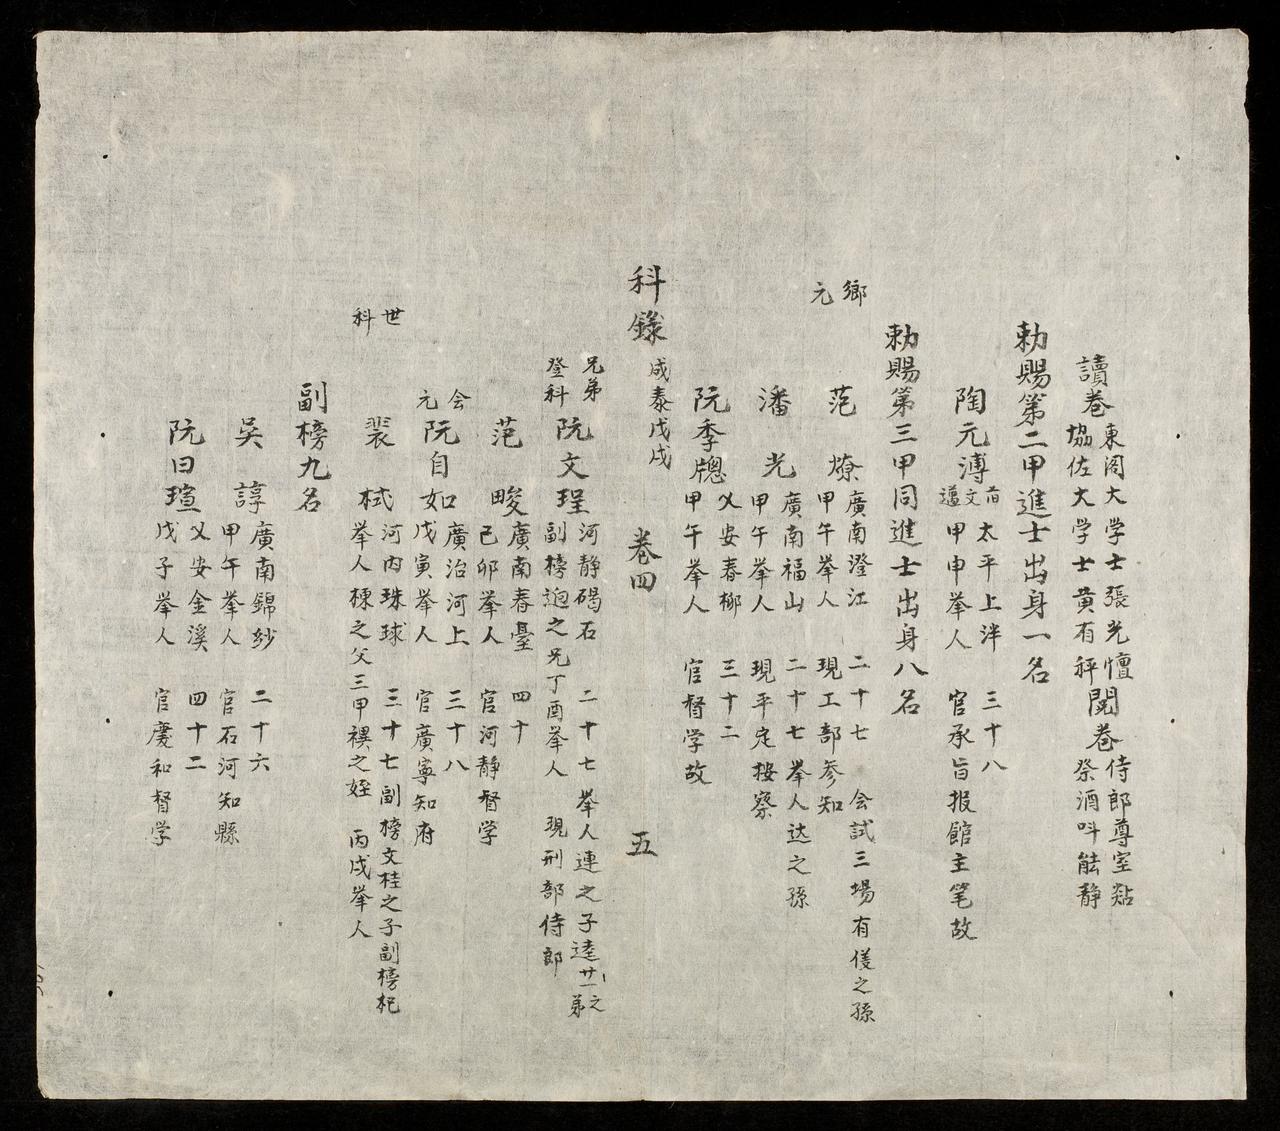 讀卷
東閣大学士張光憻
協佐大学士黄有秤
閱卷
侍郎尊室㸃
祭酒呌能静
勅賜第二甲進士出身一名
陶元溥
前文
太平上泮 三十八
甲申挙人 官承旨报館主笔故
勅賜第三甲同進士出身八名
鄉元
范熮
廣南澄江 二十七 会試三場有儍之孫
甲午挙人 現工部参知
潘光
廣南福山 二十七 挙人达之孫
甲午挙人 現平定按察
阮季
乂安春柳 三十二
甲午挙人 官督学故
科錄 成泰戊戌 卷四 五
兄弟登科
阮文珵
河静碣石 二十七 挙人連之子逵廿一之弟
副榜逈之兄丁酉挙人 現刑部侍郎
范畯
廣南春臺 四十
己卯挙人 官河静督学
会元
阮自如
廣治河上 三十八
戊寅挙人 官廣寧知府
世科
裴栻
河内珠球 三十七 副榜文桂之子副榜杞
挙人棟之父三甲禩之姪 丙戌挙人
副榜九名
吳諄
廣南錦紗 二十六
甲午挙人 官石河知縣
阮曰瑄
乂安金溪 四十二
戊子挙人 官慶和督学